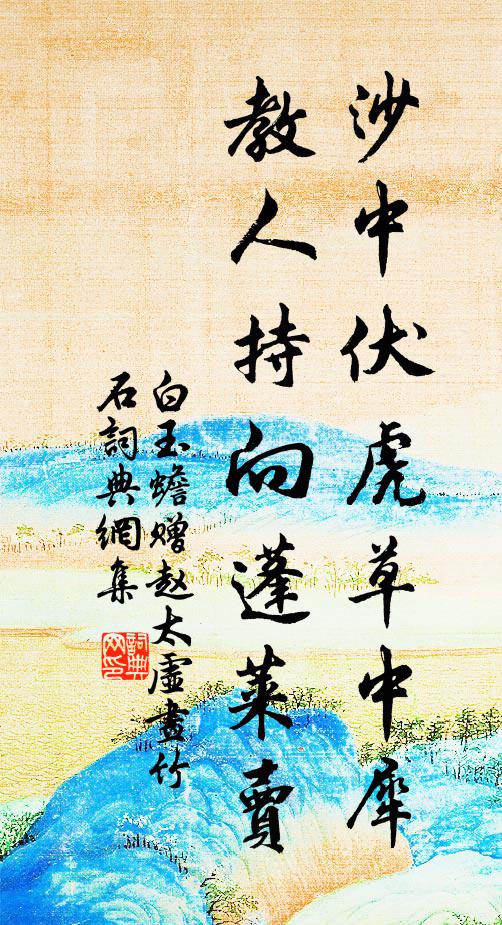 沙中伏虎草中犀
教人持向蓬莱賣
白玉蟾赠赵太虛畫竹
石詞典網集
詞典
网印